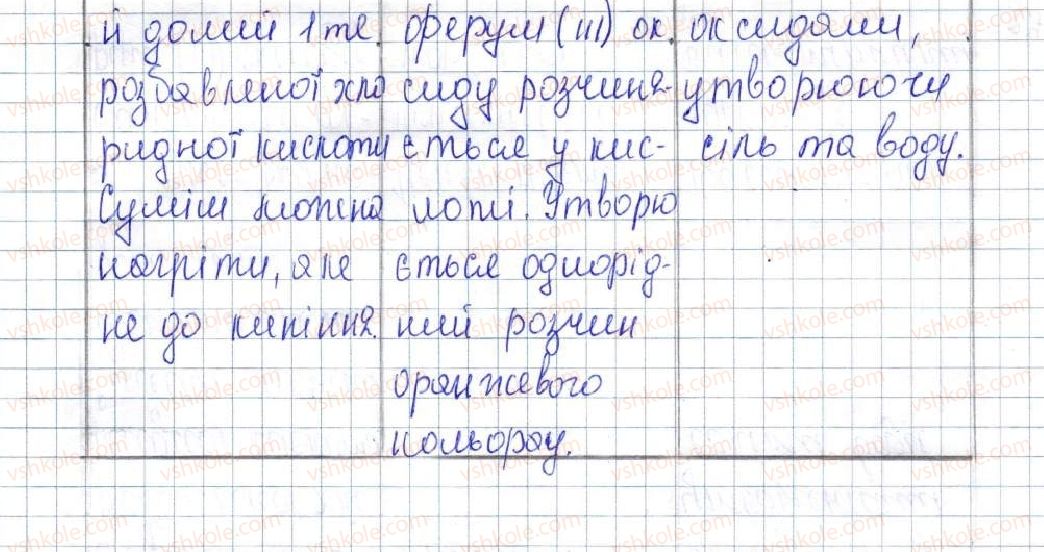 й долий 1 мл
розбавленої хло
ридної кислоти
Суміш можна
нагріти, але
не до кипіння.
ферум (III) ок
сиду розчиня-
ється у кис-
лоті. Утворю
ється однорід-
ний розчин
оранжевого
кольору.
оксидами,
утворюючи
сіль та воду.